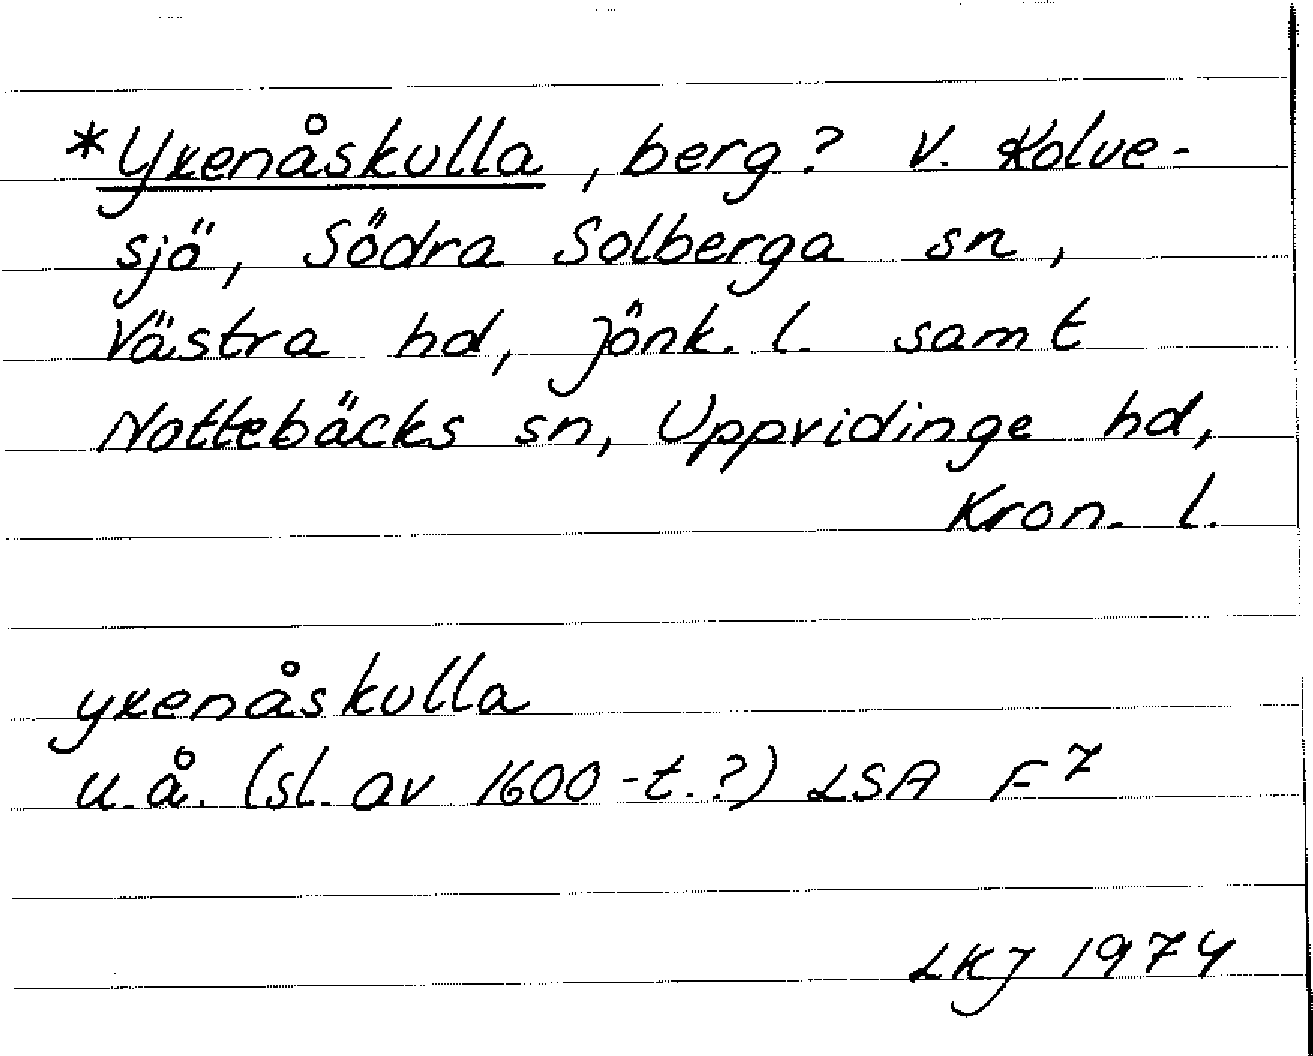 *Yxenåskulla, berg? V. Kolve-
sjö, Södra Solberga sn,
Västra hd, Jönk. l. samt
Nottebäcks sn, Uppvidinge hd,
Kron. l.
yxenåskulla
u.å. (sl. av 1600-t.?) LSA F7
LKJ 1974